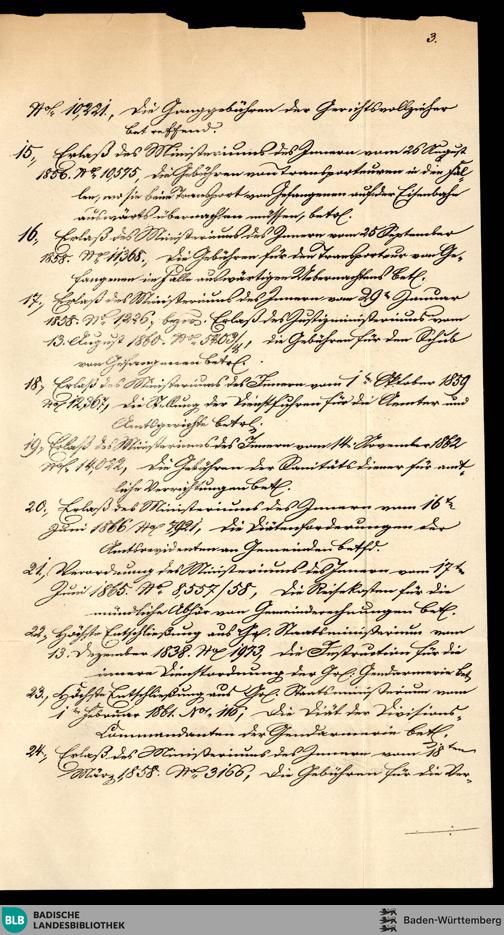 3.
No. 10,221, die Ganggebühren der Gerichtsvollzieher
betreffend.
15, Erlaß des Ministeriums des Innern vom 26 August
1856. No. 10575, die Gebühren von Transporteuren in die Fäl-
len, wo sie beim Transport von Gefangenen auf der Eisenbahn
auswärts übernachten müssen, betr.
16, Erlaß des Ministeriums des Innern vom 25 September
1858. No. 11,368. die Gebühren für den Transporteur von Ge-
fangenen im Falle auswärtigen Uebernachtens betr.
17, Erlaß des Ministeriums des Innern vom 29t Januar
1858. No. 1226; bezw. Erlaß des Justizministeriums vom
13. August 1860. No. die Gebühren für den Schub
von Gefangenen betr.
18, Erlaß des Ministeriums des Innern vom 1t Oktober 1859
No. 12,367, die Stellung der Dienstfuhren für die Aemter und
Amtsgerichte betr.
19, Erlaß des Ministeriums des Innern vom 14. November 1862
No. 14,022, die Gebühren der Sanitätsdiener für amt-
liche Verrichtungen betr.
20. Erlaß des Ministeriums des Innern vom 16te
Juni 1866 No. 7921, die Diätenforderungen der
Amtsrevidenten an Gemeinden betr.
21, Verordnung des Ministeriums des Innern vom 17te
Juni 1865. No. 8,557/58, die Reisekosten für die
mündliche Abhör von Gemeinderechnungen betr.
22, Höchste Entschließung aus Gr. Staatsministerium vom
13. Dezember 1838. No. 1973, die Instruction für die
innere Dienstordnung der Gr. Gendarmerie betr.
23, Höchste Entschließung aus Gr. Staatsministerium vom
1te Februar 1861. No. 116, die Diät der Divisions-
Commandanten der Gendarmerie betr.
24, Erlaß des Ministeriums des Innern vom 18ten
März 1858. No. 3166, die Gebühren für die Ver-
BLB BADISCHE
LANDESBIBLIOTHEK
Baden-Württemberg